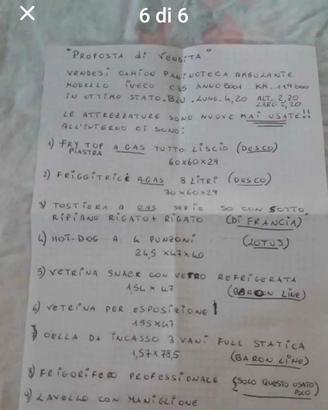 6 di 6
"PROPOSTA di VENDITA"
VENDESI CAMION PANINOTECA AMBULANTE
MODELLO IVECO C35 ANNO 2001 KM. 119000
IN OTTIMO STATO. BLU. LUNG. 4,20 ALT. 2,20
LARG. 2,20
LE ATTREZZATURE SONO NUOVE MAI USATE!!
ALL'INTERNO CI SONO:
1) FRY TOP A GAS TUTTO LISCIO (DESCO)
PIASTRA
60x60x29
2) FRIGGITRICE A GAS 8 LITRI (DESCO)
30x60x29
3) TOSTIERA A GAS SERIE SO CON SOTTO
RIPIANO RIGATO + RIGATO (DI FRANCIA)
4) HOT-DOG A 4 PUNZONI (LOTUS)
24,5 x47x40
5) VETRINA SNACK CON VETRO REFRIGERATA
154 x 47 (BARON LINE)
6) VETRINA PER ESPOSIZIONE
195x47
7) CELLA DA INCASSO 3 VANI FULL STATICA
1,57x78,5 (BARON LINE)
8) FRIGORIFERO PROFESSIONALE (SOLO QUESTO USATO)
POCO
9) LAVELLO CON MANIGLIONE